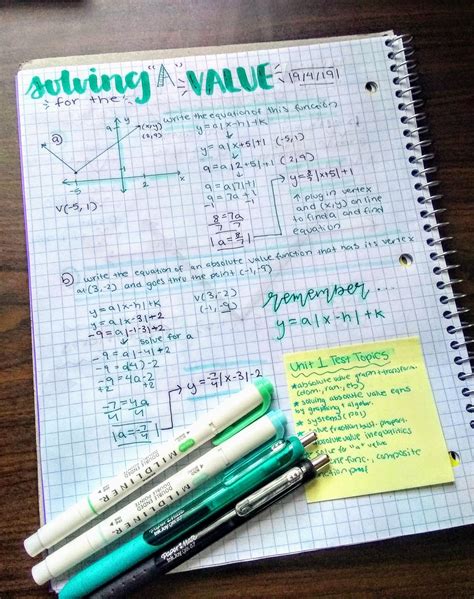 solving "A" VALUE
for the
9/4/19
write the equation of this function
a)
y
(x,y)
(2,9)
x
-5
2
V(-5,1)
y=a|x-h|+k
y=a|x+5|+1 (-5,1)
9=a|2+5|+1 (2,9)
9=a|7|+1
9=7a+1
-1 -1
8=7a
7 7
a=8/7
y=8/7|x+5|+1
↑ plug in vertex
and (x,y) on line
to find a and find
equation
b) write the equation of an absolute value function that has its vertex
at (3,-2) and goes thru the point (-1,-9)
y=a|x-h|+k
y=a|x-3|+2
-9=a|-1-3|+2
↓ solve for a
-9=a|-4|+2
-9=a(4)-2
-9=4a-2
+2 +2
-7=4a
4 4
a=-7/4
y=-7/4|x-3|-2
V(3,-2)
(-1,-9)
remember...
y=a|x-h|+k
Unit 1 Test Topics
*absolute value graph+transform.
*solving absolute value eqns
by graphing + algebra
*systems
absolute value inequalities
solve for "a" value
func., composite
function proof
MILDLINER
DOUBLE ENDED
MILDLINER
DOUBLE ENDED
PaperMate
INKJOY GEL 0.7
PaperMate
INKJOY GEL 0.7